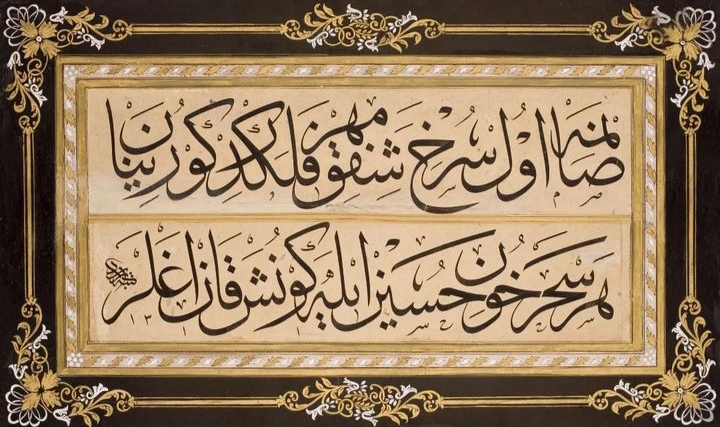 صانمه اول سرخ شفق مهر فلكدر كورينان
هر سحر خون حسين ايله كونش قان اغلر